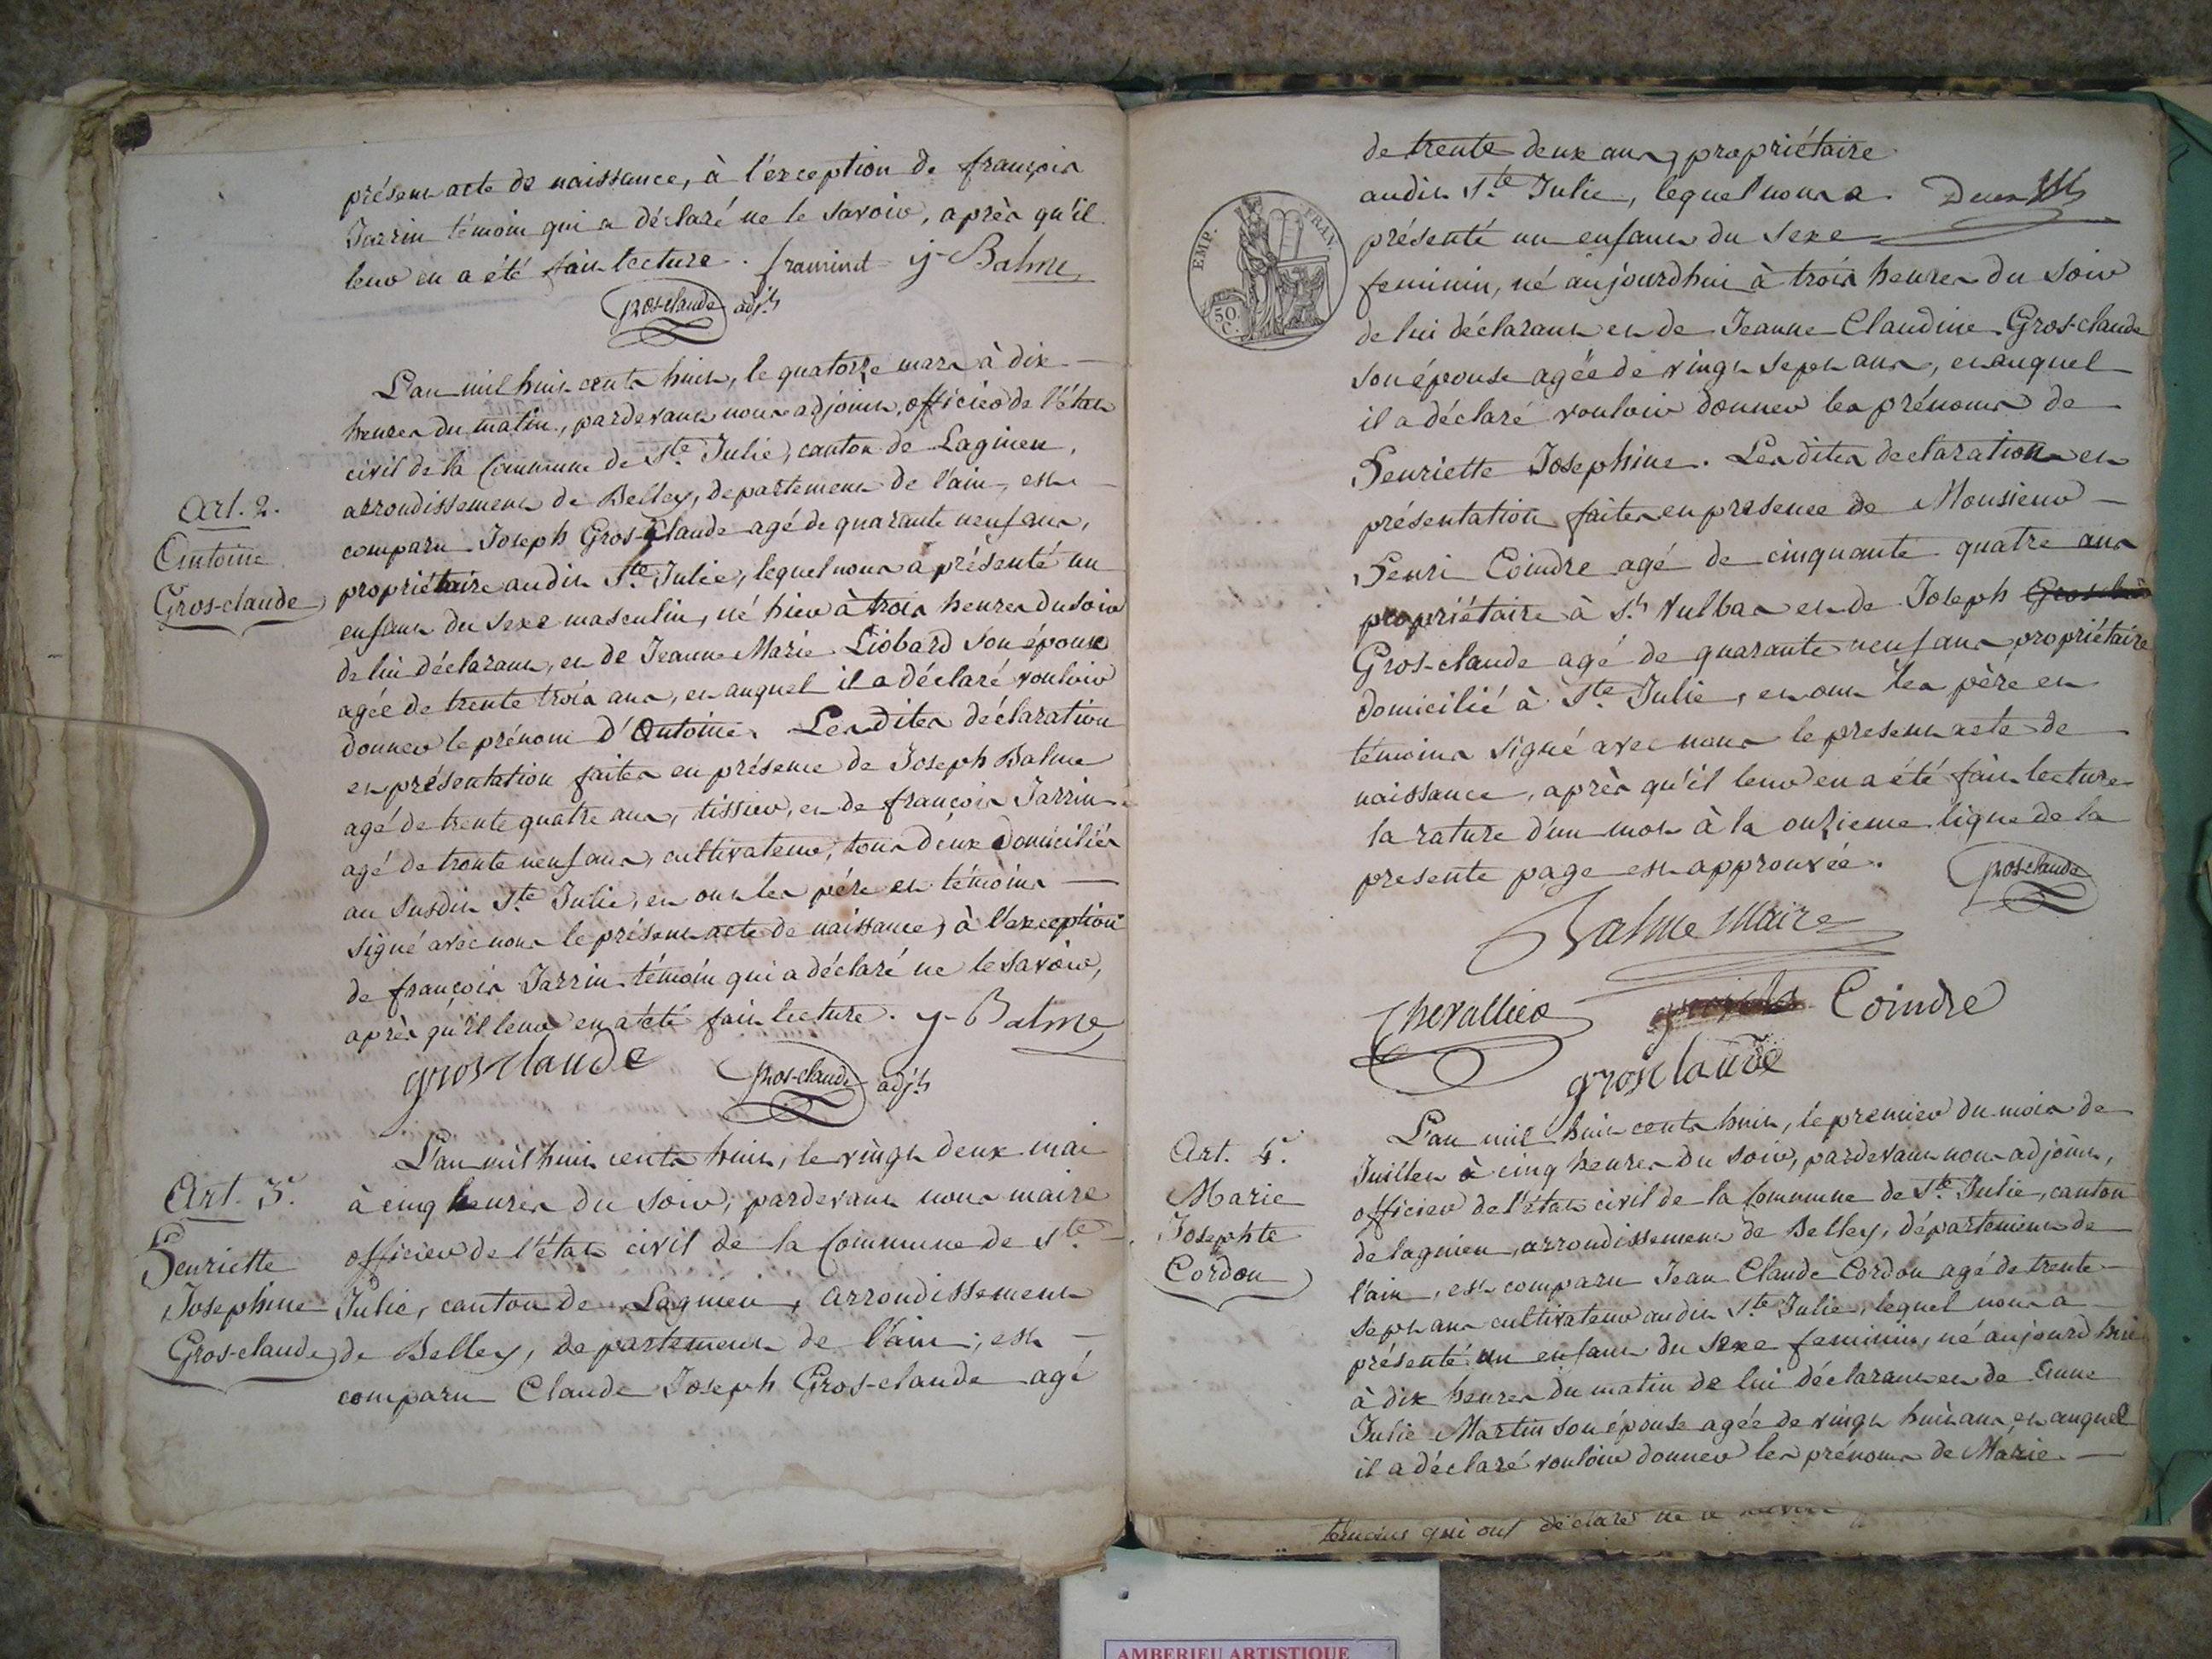 présent acte de naissance, à l'exception de françois
Jarrin témoin qui a déclaré ne le savoir, après qu'il
leur en a été fait lecture. framinet j- Balme
Gros-claude adjt
L'an mil huit cents huit, le quatorze mars à dix
heures du matin, pardevant nous adjoint, officier de l'état
civil de la Commune de Ste Julie, canton de Lagnieu,
arrondissement de Belley, departement de l'ain, est
Art. 2.
Antoine
Gros-claude
comparu Joseph Gros-Claude agé de quarante neuf ans,
propriétaire audit Ste Julie, lequel nous a présenté un
enfant du sexe masculin, né hier à trois heures du soir
de lui déclarant, et de Jeanne Marie Liobard son épouse
agée de trente trois ans, et auquel il a déclaré vouloir
donner le prénom d'Antoine. Lesdites déclaration
et présentation faites en présence de Joseph Balme
agé de trente quatre ans, tissier, et de françois Jarrin
agé de trente neuf ans, cultivateur, tous deux domiciliés
au susdit Ste Julie, et ont les père et témoins
signé avec nous le présent acte de naissance, à l'exception
de françois Jarrin témoin qui a déclaré ne le savoir,
après qu'il leur en a été fait lecture. j- Balme
grosclaude Gros-claude adjt
L'an mil huit cents huit, le vingt deux mai
Art. 3.
Henriette
Josephine
Gros-claude
à cinq heures du soir, pardevant nous maire
officier de l'état civil de la Commune de Ste
Julie, canton de Lagnieu, arrondissement
de Belley, departement de l'ain, est
comparu Claude Joseph Gros-claude agé
de trente deux ans, propriétaire
audit Ste Julie, lequel nous a Deux
présenté un enfant du sexe
EMP. FRAN.
50 C.
feminin, né aujourdhui à trois heures du soir
de lui déclarant et de Jeanne Claudine Gros-claude
son épouse agée de vingt sept ans, et auquel
il a déclaré vouloir donner les prénoms de
Henriette Josephine. Lesdites declaration et
présentation faites en presence de Monsieur
Henri Coindre agé de cinquante quatre ans
propriétaire à St Vulbas et de Joseph
Gros-claude agé de quarante neuf ans propriétaire
domicilié à Ste Julie, et ont les père et
témoins signé avec nous le present acte de
naissance, après qu'il leur en a été fait lecture
la rature d'un mot à la onzieme ligne de la
presente page est approuvée. Gros-claude
Balme Maire
Chevallier Coindre
grosclaude
L'an mil huit cents huit, le premier du mois de
Art. 4.
Marie
Josephte
Cordon
Juillet à cinq heures du soir, pardevant nous adjoint,
officier de l'état civil de la Commune de Ste Julie, canton
de lagnieu, arrondissement de Belley, département de
l'ain, est comparu Jean Claude Cordon agé de trente
sept ans cultivateur audit Ste Julie, lequel nous a
présenté un enfant du sexe feminin, né aujourd'hui
à dix heures du matin de lui déclarant et de Anne
Julie Martin son épouse agée de vingt huit ans, et auquel
il a déclaré vouloir donner les prénoms de Marie
témoins qui ont déclaré ne le savoir
AMBERIEU ARTISTIQUE